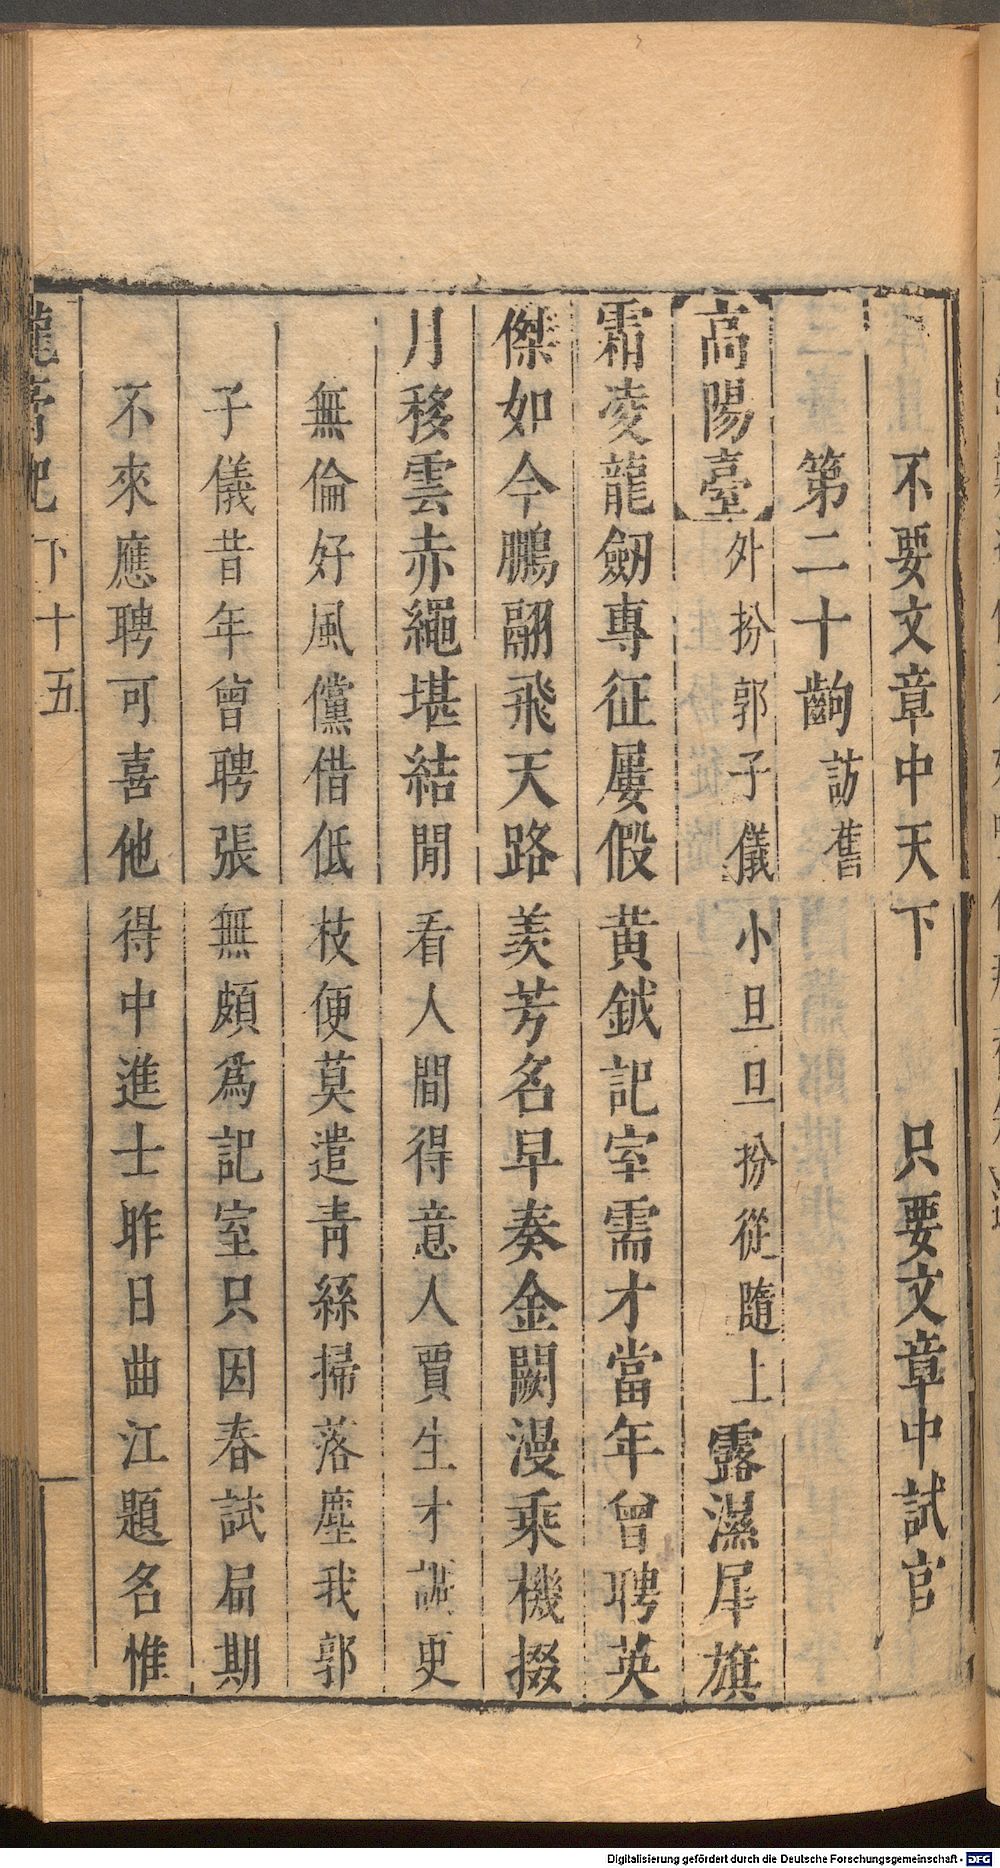 不要文章中天下　只要文章中試官
第二十齣 訪舊
高陽臺 外扮郭子儀小旦旦扮從隨上 露濕犀旗
霜凌龍劒專征屢假黃鉞記室需才當年曾聘英
傑如今鵬翮飛天路羨芳名早奏金闕漫乘機掇
月移雲赤繩堪結閒看人間得意人賈生才調更
無倫好風儻借低枝便莫遣青絲掃落塵我郭
子儀昔年曾聘張無頗爲記室只因春試屆期
不來應聘可喜他得中進士昨日曲江題名惟
龍膏記 下 十五
Digitalisierung gefördert durch die Deutsche Forschungsgemeinschaft - DFG